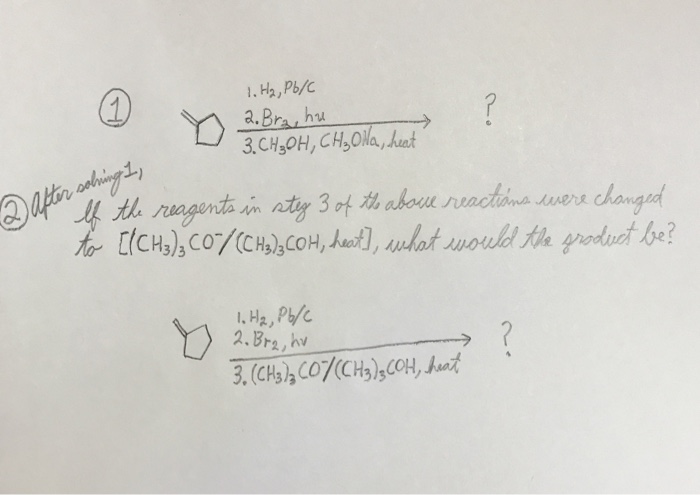 ① 1. H₂, Pb/C
2. Br₂, hν ?
3. CH₃OH, CH₃ONa, heat
② After solving 1,
If the reagents in step 3 of the above reactions were changed
to [(CH₃)₃CO⁻/(CH₃)₃COH, heat], what would the product be?
1. H₂, Pb/C
2. Br₂, hν ?
3. (CH₃)₃CO⁻/(CH₃)₃COH, heat